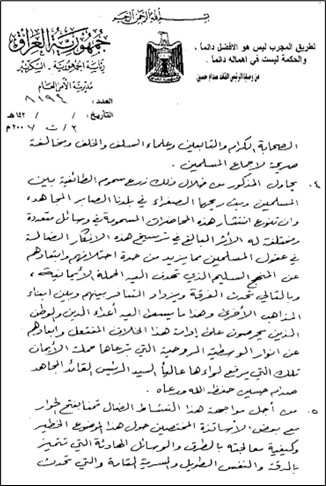 بسم الله الرحمن الرحيم
جمهورية العراق
رئاسة الجمهورية - السكرتير
مديرية الأمن العام
لطريق المجرب ليس هو الافضل دائماً
والحكمة ليست في اهماله دائماً .
من وصايا الرئيس القائد صدام حسين
العدد :
التاريخ :
الصحابة الكرام والتابعين وعلماء السلف والخلف ومخالفة
صريحة لاجماع المسلمين .
٤. يحاول المذكور من خلال ذلك زرع سموم الطائفية بين
المسلمين وبث ريحها الصفراء في بلدنا الصابر المجاهد
وان تنوع انتشار هذه المحاضرات المسمومة في وسائل متعددة
ومختلفة له الأثر البالغ في ترسيخ هذه الافكار الضالة
في عقول المسلمين مما يزيد من حدة اختلافهم وابتعادهم
عن المنهج السليم الذي تحدث اليه الحملة الأيمانية،
وبالتالي تحدث الفرقة ويزداد التنافر بينهم وبين ابناء
المذاهب الأخرى وهذا ما يسعى اليه أعداء الدين والوطن
الذين يحرصون على إدامة هذا الخلاف المفتعل وابعادهم
عن انوار الوسطية الروحية التي ترعاها حملة الأيمان
تلك التي يرفع لواءها عالياً السيد الرئيس القائد المجاهد
صدام حسين حفظه الله ورعاه .
٥. من أجل مواجهة هذا النشاط الضال قمنا بفتح حوار
مع بعض الأساتذة المختصين حول هذا الموضوع الخطير
وكيفية معالجته بالطرق والوسائل الهادئة التي تتميز
بالدقة والنفس الطويل والسرية التامة والتي تحدث